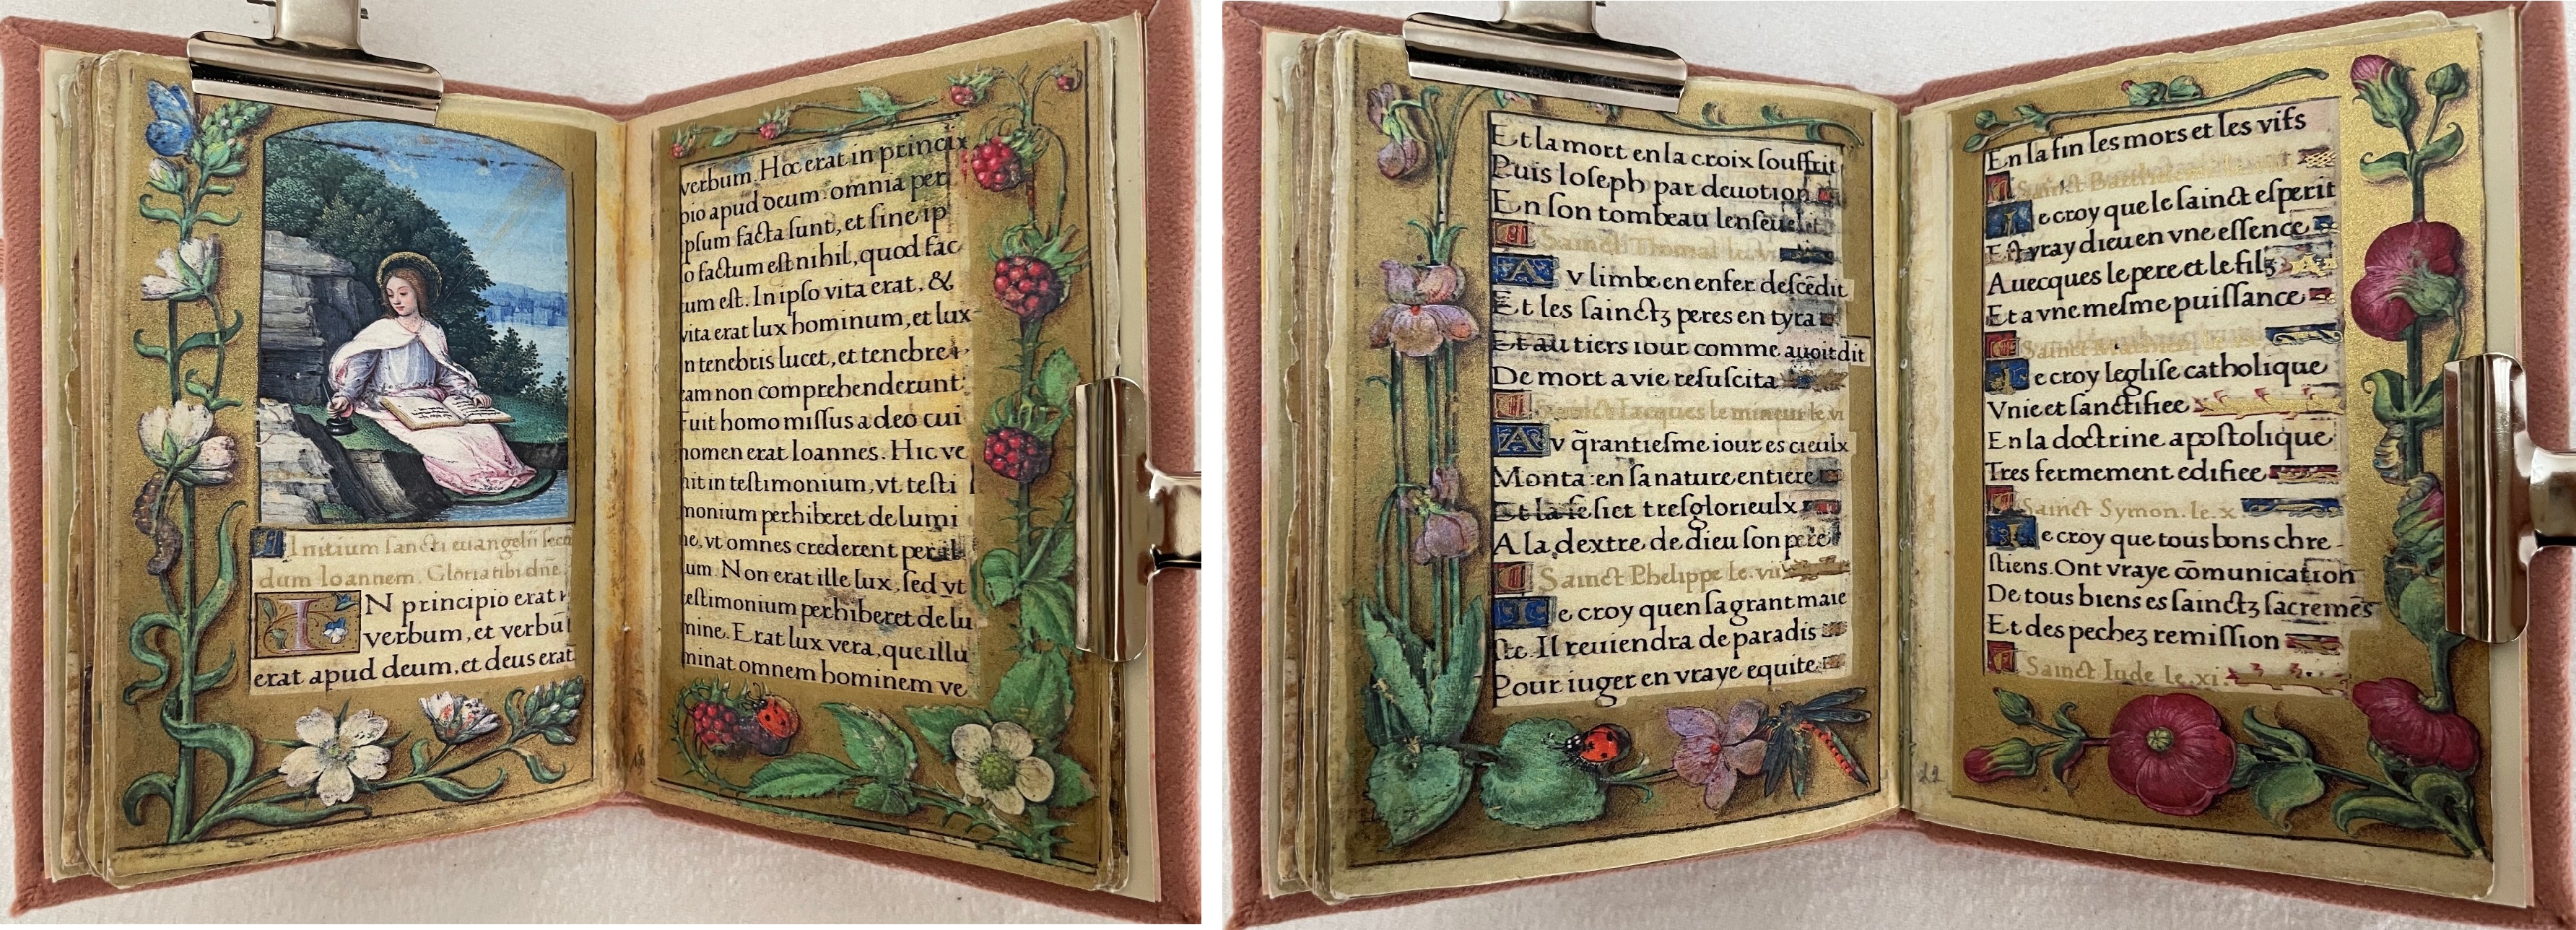 Initium sancti euangelii secu
dum Ioannem. Gloria tibi dñe.
IN principio erat
verbum, et verbū
erat apud deum, et deus erat
verbum. Hoc erat in princi
pio apud deum. omnia per
ipsum facta sunt, et sine ip
so factum est nihil, quod fac
tum est. In ipso vita erat, &
vita erat lux hominum, et lux
in tenebris lucet, et tenebre
eam non comprehenderunt:
Fuit homo missus a deo cui
nomen erat Ioannes. Hic ve
nit in testimonium, vt testi
monium perhiberet de lumi
ne, vt omnes crederent per il
lum. Non erat ille lux, sed vt
testimonium perhiberet de lu
mine. Erat lux vera, que illu
minat omnem hominem ve
Et la mort en la croix souffrit
Puis Ioseph par deuotion
En son tombeau lenseuelit
Sainct Thomas le.v.
Av limbe en enfer descēdit
Et les sainctz peres en tyra
Et au tiers iour comme auoit dit
De mort a vie resuscita
Sainct Iacques le mineur le.vi
Av q̄rantiesme iour es cieulx
Monta: en sa nature entiere
Et la se siet tresglorieulx
A la dextre de dieu son pere
Sainct Phelippe le.vii
Ie croy quen sa grant maie
ste. Il reuiendra de paradis
Pour iuger en vraye equite
En la fin les mors et les vifs
Sainct
Ie croy que le sainct esperit
Est vray dieu en vne essence
Auecques le pere et le filz
Et a vne mesme puissance
Sainct
Ie croy leglise catholique
Vnie et sanctifiee
En la doctrine apostolique
Tres fermement edifiee
Sainct Symon. le.x
Ie croy que tous bons chre-
stiens. Ont vraye cōmunication
De tous biens es sainctz sacremēs
Et des pechez remission
Sainct Iude le.xi.
22